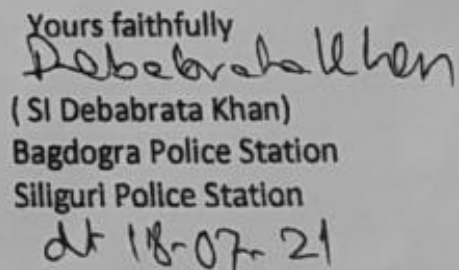 Yours faithfully
Debabrata Khan
( SI Debabrata Khan)
Bagdogra Police Station
Siliguri Police Station
dt 18-07-21